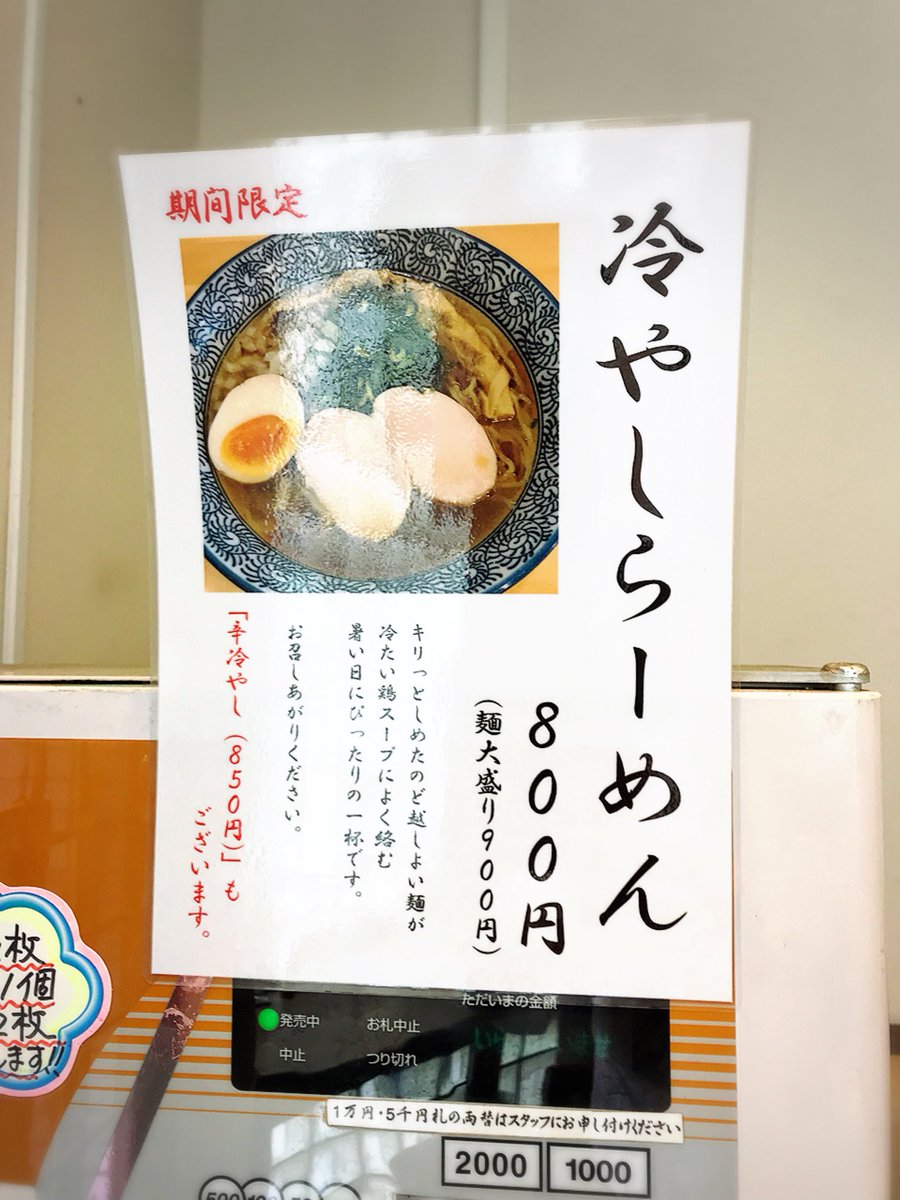 期間限定
冷やしらーめん
800円
(麺大盛り900円)
キリっとしめたのど越しよい麺が
冷たい鶏スープによく絡む
暑い日にぴったりの一杯です。
お召しあがりください。
「辛冷やし(850円)」も
ございます。
枚
1個
2枚
します!!
ただいまの金額
発売中
お札中止
中止
つり切れ
1万円・5千円札の両替はスタッフにお申し付けください
2000
1000
500